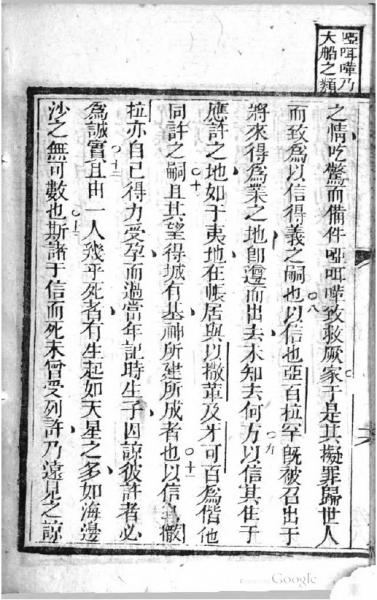 啞咡嘩乃
大船之類
之情吃驚而備件啞咡嘩致救厥家于是其擬罪歸世人
而致為以信得義之嗣也○八以信也亞百拉罕既被召出于
將來得為業之地卽遵而出去未知去何方○九以信其住于
應許之地如于夷地在帳居與以撒革及牙可百為偕他
同許之嗣○十且其望得城有基神所建所成者也○十一以信其撒
拉亦自己得力受孕而過當年記時生子因諒彼許者必
為誠實○十二且由一人幾乎死者有生起如天星之多如海邊
沙之無可數也○十三斯諸于信而死未曾受列許乃遠星之諒
Google